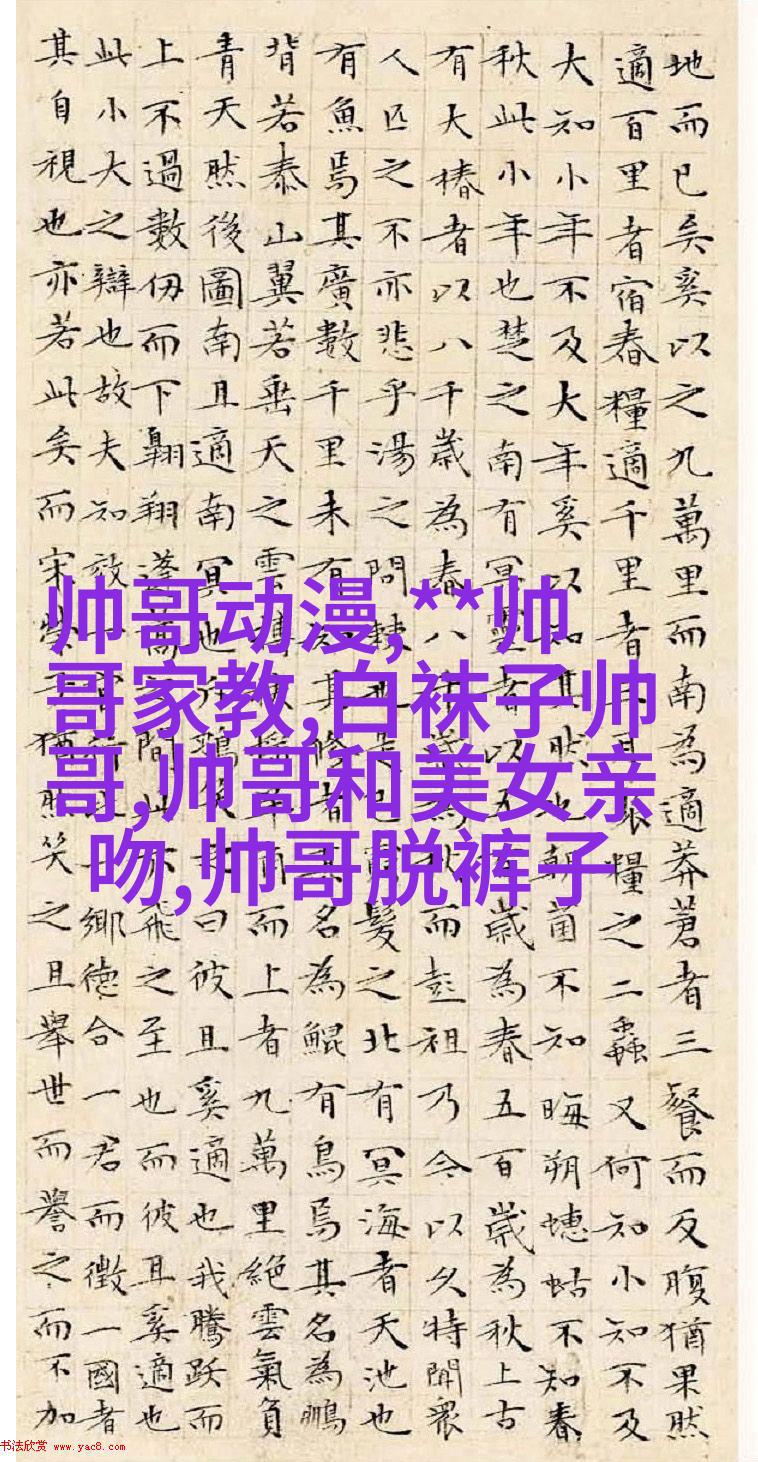 地而已矣奚以之九萬里而南為適莽蒼者三餐而反腹猶果然
適百里者宿舂糧適千里者三月聚糧之二蟲又何知小知不及
大知小年不及大年奚以知其然也朝菌不知晦朔蟪蛄不知春
秋此小年也楚之南有冥靈者以五百歲為春五百歲為秋上古
有大椿者以八千歲為春八千歲為秋而彭祖乃今以久特聞眾
人匹之不亦悲乎湯之問棘也是已窮髮之北有冥海者天池也
有魚焉其廣數千里未有知其修者其名為鯤有鳥焉其名為鵬
背若泰山翼若垂天之雲摶扶搖羊角而上者九萬里絕雲氣負
青天然後圖南且適南冥也斥鴳笑之曰彼且奚適也我騰躍而
上不過數仞而下翱翔蓬蒿之間此亦飛之至也而彼且奚適也
此小大之辯也故夫知效一官行比一鄉德合一君而徵一國者
其自視也亦若此矣而宋榮子猶然笑之且舉世而譽之而不加
帅哥动漫,**帅
哥家教,白袜子帅
哥,帅哥和美女亲
吻,帅哥脱裤子
书法欣赏 www.yac8.com